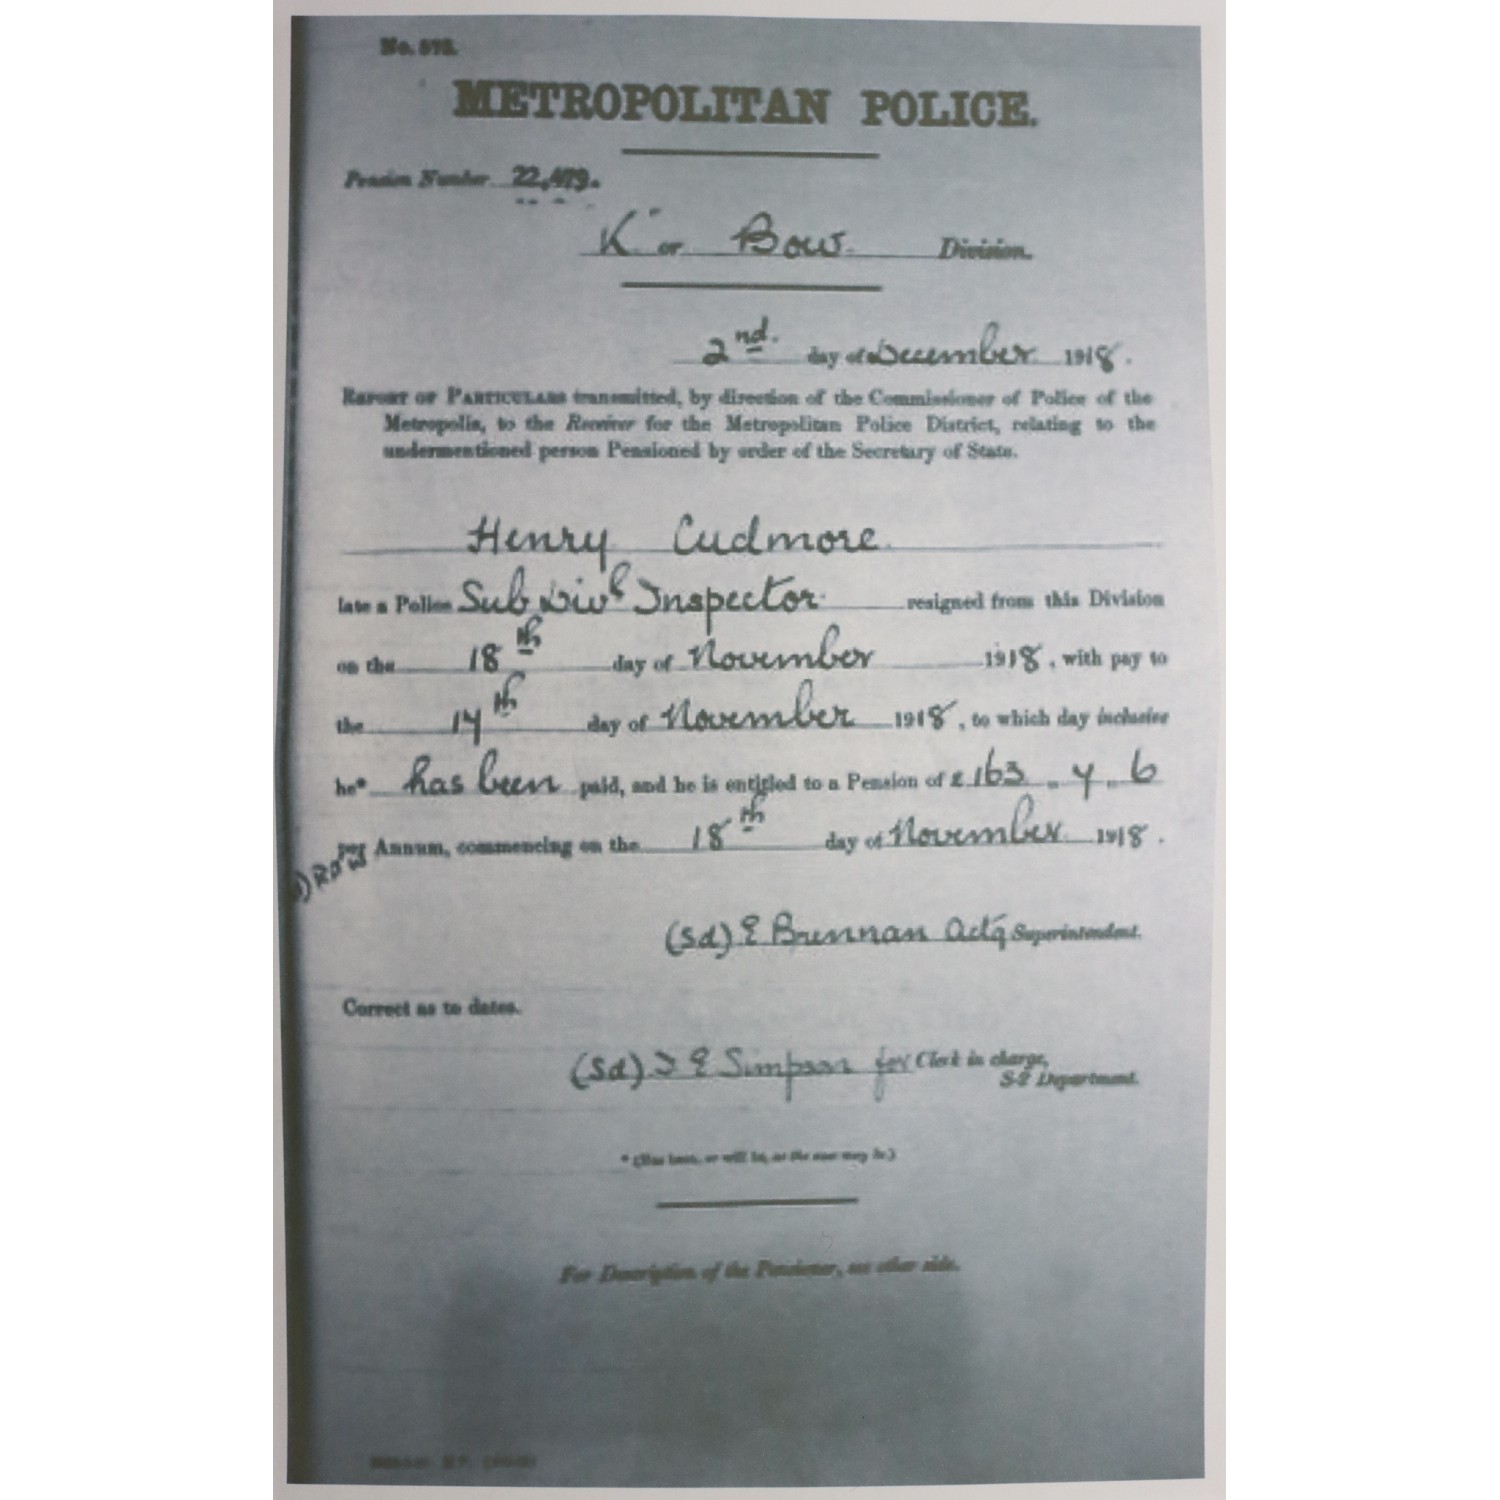 METROPOLITAN POLICE.
Pension Number 22,479.
"K" or Bow Division.
2nd. day of December 1918.
REPORT OF PARTICULARS transmitted, by direction of the Commissioner of Police of the
Metropolis, to the Receiver for the Metropolitan Police District, relating to the
undermentioned person Pensioned by order of the Secretary of State.
Henry Cudmore.
late a Police Sub Divl Inspector resigned from this Division
on the 18th day of November 1918, with pay to
the 17th day of November 1918, to which day inclusive
he* has been paid, and he is entitled to a Pension of £163 " 4 " 6
per Annum, commencing on the 18th day of November 1918.
(Sd) E Brennan Actg Superintendent.
Correct as to dates.
(Sd) E Simpson for Clerk in charge,
S-2 Department.
* (Has been, or will be, as the case may be.)
For Description of the Pensioner, see other side.